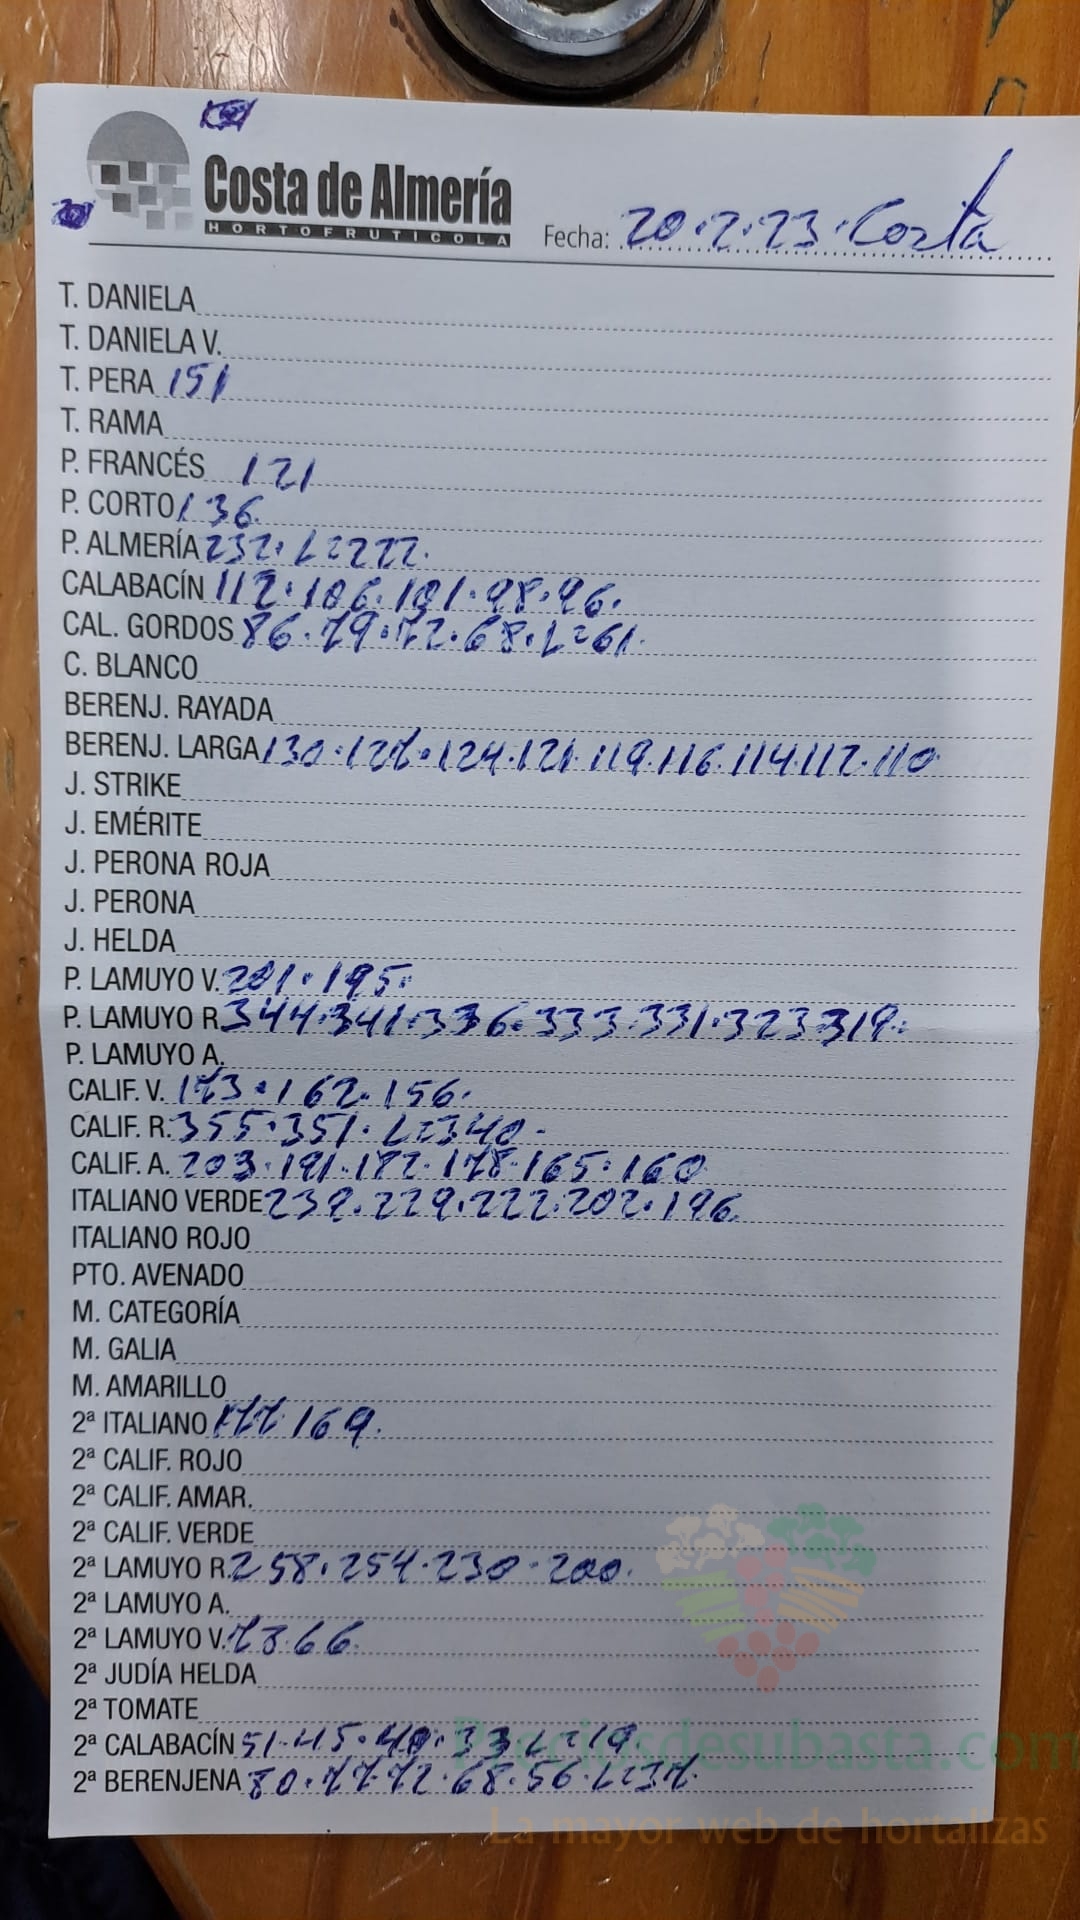 Costa de Almería
HORTOFRUTICOLA
Fecha: 20.2.23. Costa
T. DANIELA
T. DANIELA V.
T. PERA 151
T. RAMA
P. FRANCÉS 121
P. CORTO 136.
P. ALMERÍA 232. L=222.
CALABACÍN 112. 106. 101. 98. 96.
CAL. GORDOS 86. 79. 72. 68. L=61.
C. BLANCO
BERENJ. RAYADA
BERENJ. LARGA 130. 127. 124. 121. 119. 116. 114. 112. 110
J. STRIKE
J. EMÉRITE
J. PERONA ROJA
J. PERONA
J. HELDA
P. LAMUYO V. 201. 195.
P. LAMUYO R. 344. 341. 336. 333. 331. 323. 319.
P. LAMUYO A.
CALIF. V. 173. 162. 156.
CALIF. R. 355. 351. L=340.
CALIF. A. 203. 191. 182. 178. 165. 160
ITALIANO VERDE 239. 229. 222. 202. 196.
ITALIANO ROJO
PTO. AVENADO
M. CATEGORÍA
M. GALIA
M. AMARILLO
2ª ITALIANO 177. 169.
2ª CALIF. ROJO
2ª CALIF. AMAR.
2ª CALIF. VERDE
2ª LAMUYO R. 258. 254. 230. 200.
2ª LAMUYO A.
2ª LAMUYO V. 73. 66.
2ª JUDÍA HELDA
2ª TOMATE
2ª CALABACÍN 51. 45. 40. 33. L=19.
2ª BERENJENA 80. 77. 72. 68. 56. L=37.
Preciosdesubasta.com
La mayor web de hortalizas